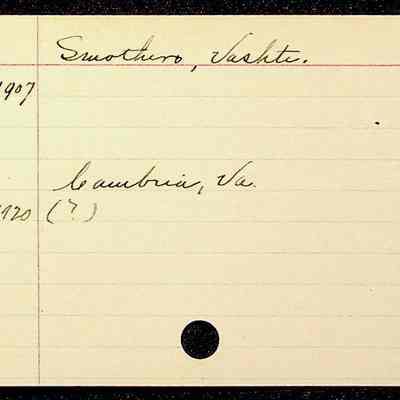 Smothers, Vashti.
1907
Cambria, Va.
1920 (?)